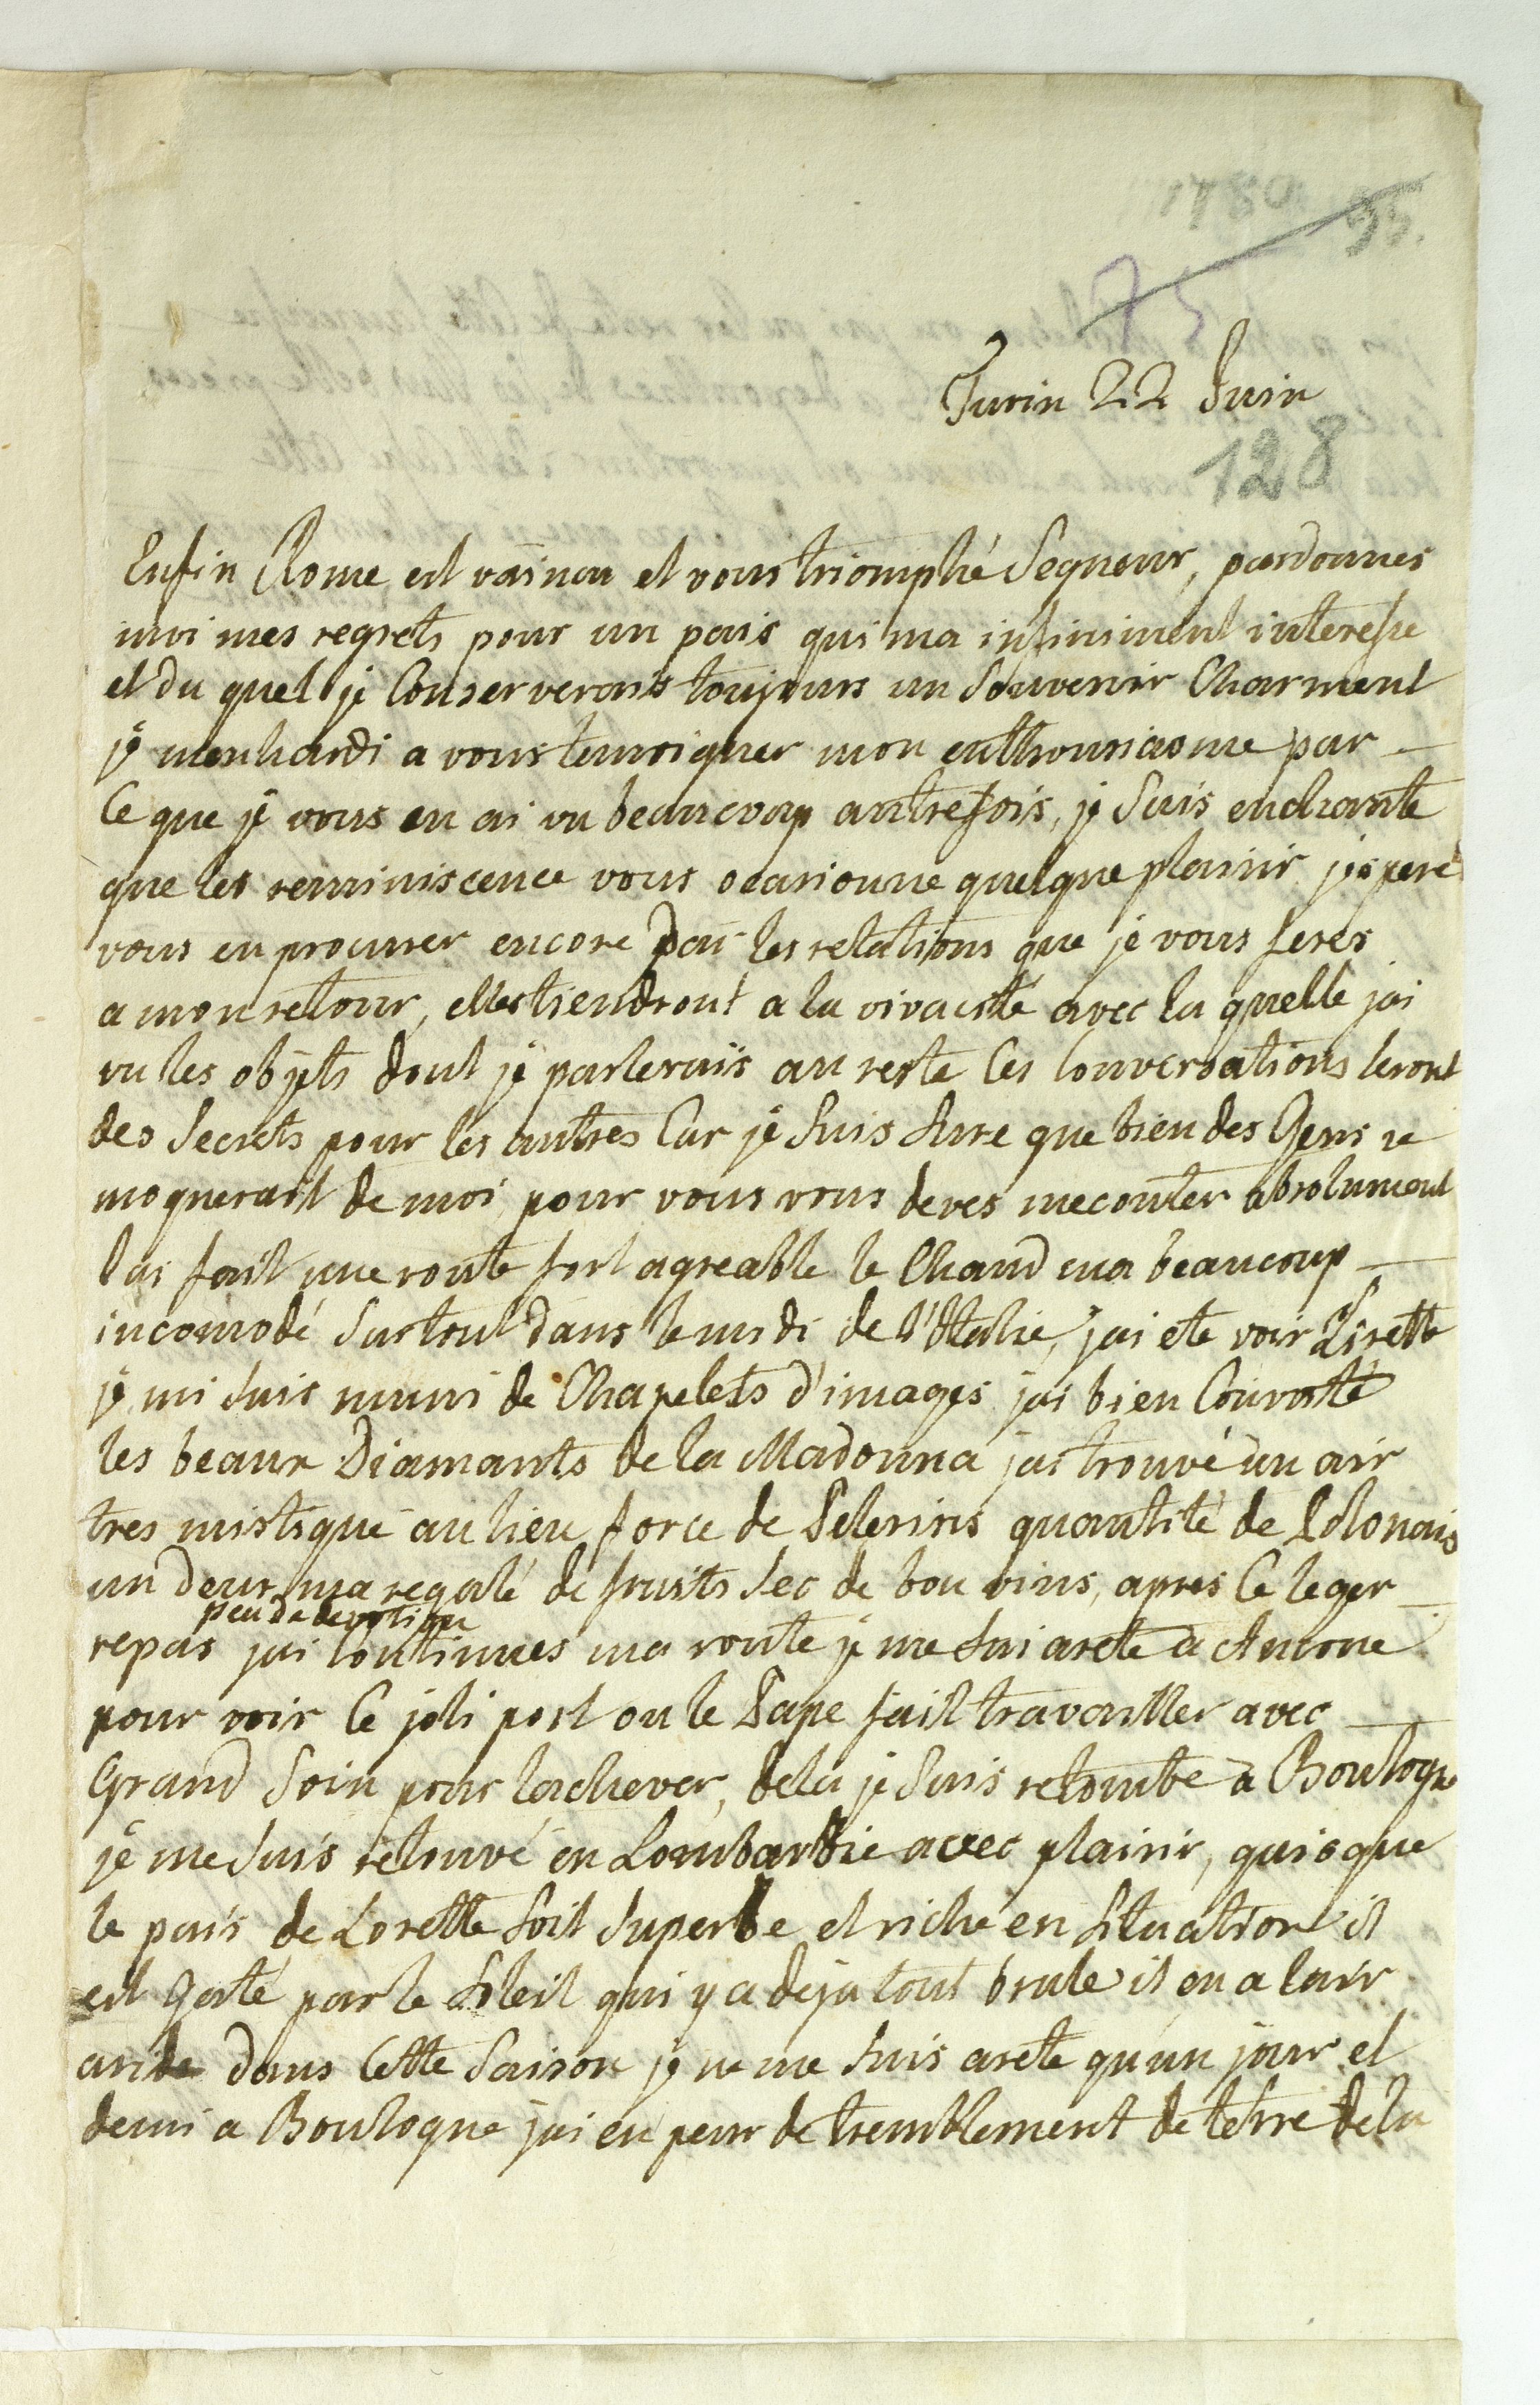 1780
95.
75
Turin 22 Juin
128
Enfin Rome est vainou et vous triomphé Segneur, pardonnes
moi mes regrets pour un pais qui ma infiniment interesse
et du quel je Conserverais toujours un Souvenir Charment
je menhardi a vous temoigner mon enthousiasme par
Ce que je vous en ai vu beaucoup autrefois, je Suis enchante
que les reminiscence vous ocasionne quelque plaisir jespere
vous en procurer encore par les relations que je vous feres
a mon retour, elles tiendront a la vivacité avec la quelle jai
vu les objets dont je parlerais au reste Ces Conversations seront
des Secrets pour les autres Car je Suis Sure que bien des Gens se
moquerait de moi, pour vous vous deves mecouter absolument
Jai fait une route fort agreable le Chaud ma beaucoup
incomodé Surtout dans le midi de l'Italie, jai ete voir Lorette
je mi suis muni de Chapelets d'images jai bien Convoité
les beaux Diamants de la Madonna jai trouvé un air
tres mistique au lieu force de Pelerins quantité de Polonais
un deux ma regalé de fruits Sec de bon vins, apres Ce leger
peu de devotion
repas jai continues ma route je me sui arete a Ancone
pour voir Ce joli port ou le Pape fait travailler avec
Grand Soin pour lachever, dela je Suis retombe a Boulogne
je me suis retouvé en Lombardie avec plaisir, quisque
le pais de Lorette Soit Superbe et riche en Situation il
est gaté par le Soleil qui y a deja tout brule il en a lair
aride dans Cette Saison je ne me Suis arete quun jour et
demi a Boulogne jai eu peur de tremblement de terre dela